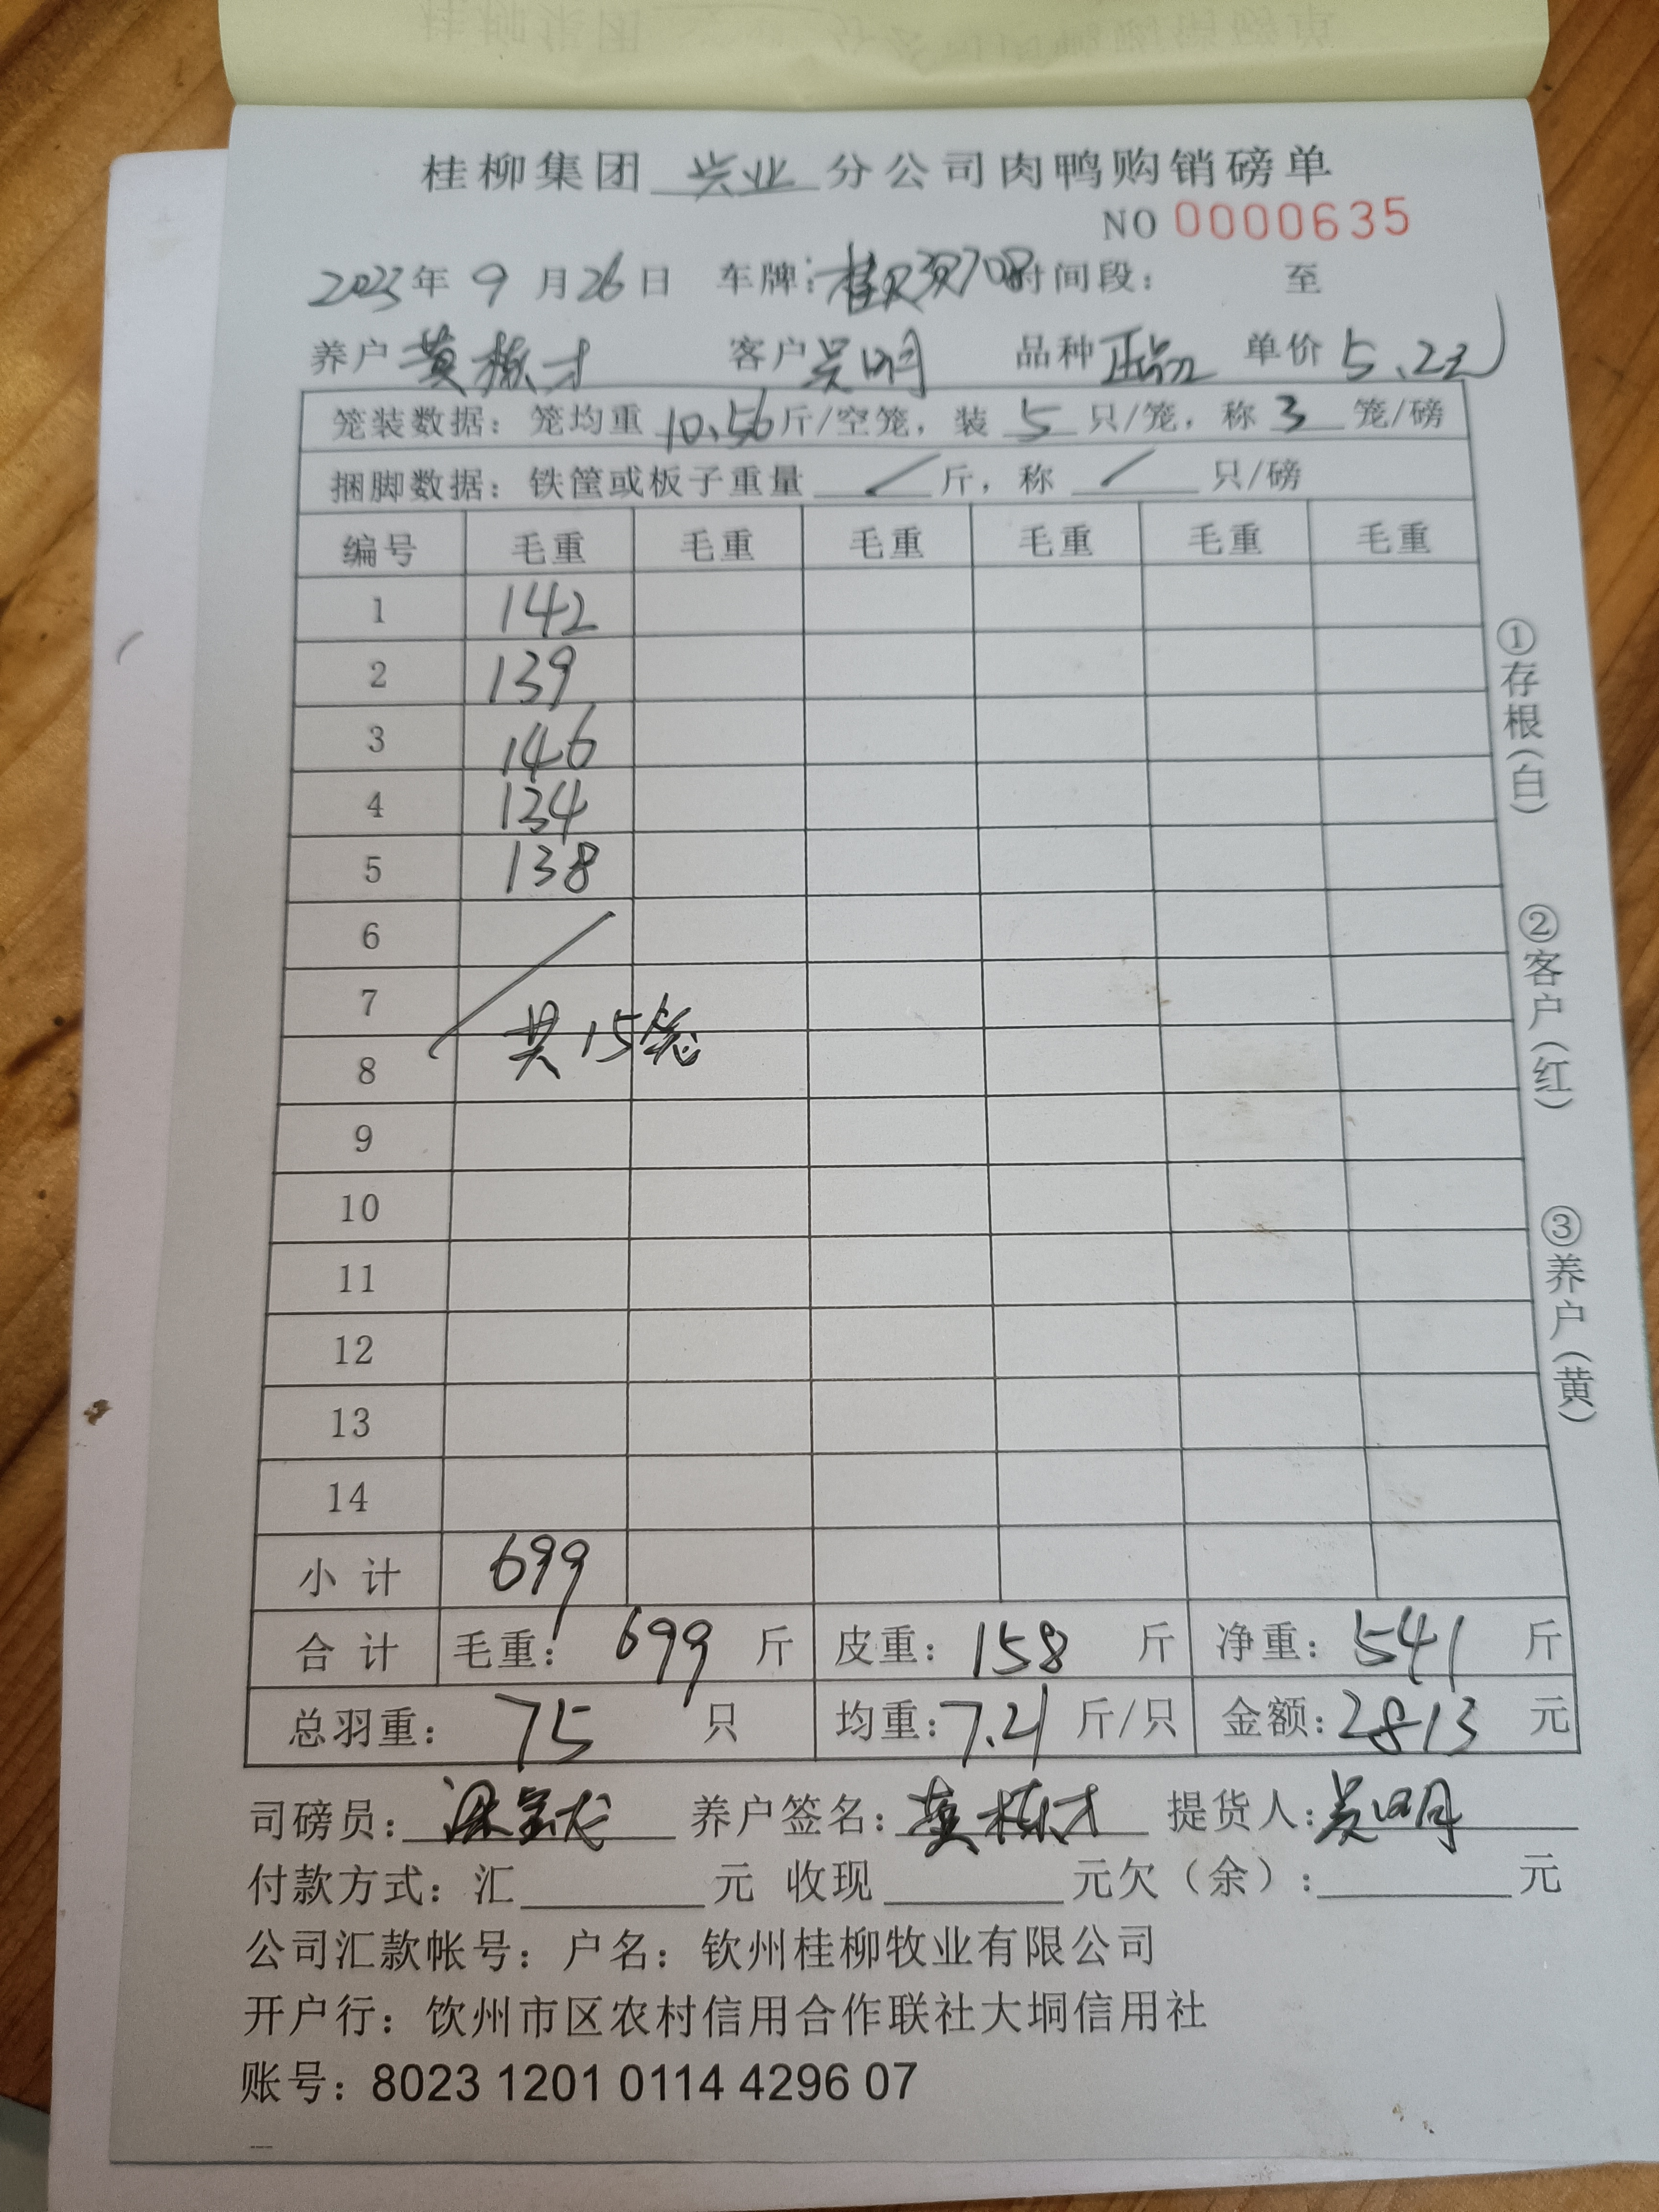 桂柳集团 兴业 分公司肉鸭购销磅单
NO 0000635
2023年 9 月 26 日 车牌: 时间段: 至
养户 黄 才 客户 吴明 品种 正品 单价 5.2元
笼装数据: 笼均重 10.56 斤/空笼, 装 5 只/笼, 称 3 笼/磅
捆脚数据: 铁筐或板子重量 / 斤, 称 / 只/磅
编号 毛重 毛重 毛重 毛重 毛重 毛重
1 142
2 139
3 146
4 134
5 138
6
7
共15笼
8
9
10
11
12
13
14
小计 699
合计 毛重: 699 斤 皮重: 158 斤 净重: 541 斤
总羽重: 75 只 均重: 7.21 斤/只 金额: 2813 元
司磅员: 养户签名: 黄 才 提货人: 吴明
付款方式: 汇 元 收现 元欠(余): 元
公司汇款帐号: 户名: 钦州桂柳牧业有限公司
开户行: 钦州市区农村信用合作联社大垌信用社
账号: 8023 1201 0114 4296 07
①存根(白)
②客户(红)
③养户(黄)